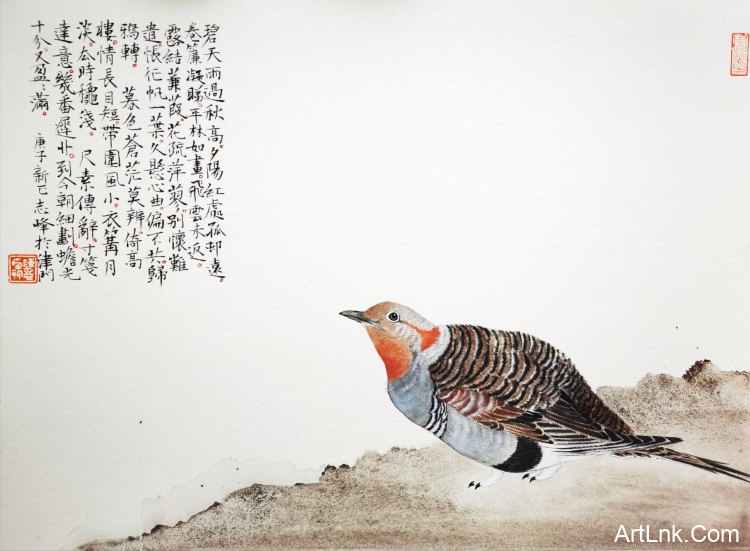 碧天雨過秋高。夕陽紅處孤邨遠。
卷簾凝睇。平林如畫。飛雲未返。
露結蒹葭。花疏萍蓼。別懷難
遣。悵征帆一葉。久懸心曲。偏不共歸
鴉轉。暮色蒼茫莫辨。倚高
樓。情長目短。帶圍風小。衣篝月
淡。瓜時穐淺。尺素傳辭。寸箋
達意。幾番遲。到今朝細劃。蟾光
十分。又盈〻滿。庚子新志峰於津門
ArtLnk.Com